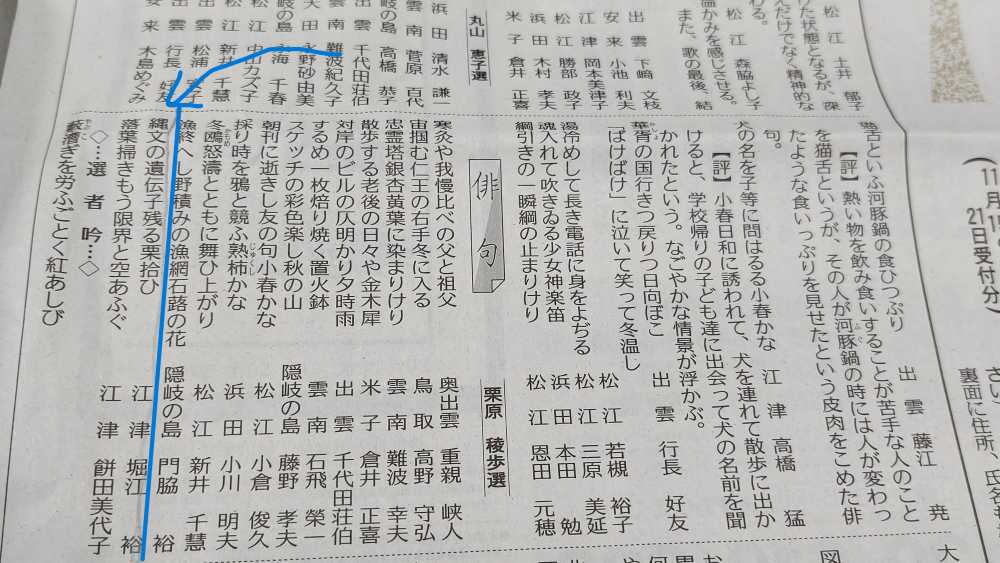 松江 土井 郁子
った状態となるが、深
んだけでなく精神的な
わる。
松江 森脇よし子
温かみを感じさせる。
また、歌の最後、結
出雲 下﨑 文枝
安来 小池 利夫
江津 岡本美津子
松江 勝部 政子
浜田 木村 孝夫
米子 倉井 正喜
丸山 恵子選
浜田 清水 謙一
雲南 菅原 百代
隠岐の島 高橋 恭子
出雲 千代田荘伯
雲南 難波紀久子
大田 永野砂由美
隠岐の島 千春
松江 中山カズ子
松江 新井 千慧
出雲 松浦
出雲 行長 好友
安来 木島めぐみ
(11月15
21日受付分)
裏面に住所、氏名
猫舌といふ河豚鍋の食ひつぷり 出雲 藤江 尭
【評】熱い物を飲み食いすることが苦手な人のこと
を猫舌というが、その人が河豚鍋の時には人が変わっ
たような食いっぷりを見せたという皮肉をこめた俳
句。
犬の名を子等に問はるる小春かな 江津 高橋 猛
【評】小春日和に誘われて、犬を連れて散歩に出か
けると、学校帰りの子ども達に出会って犬の名前を聞
かれたという。なごやかな情景が浮かぶ。
華胥の国行きつ戻りつ日向ぼこ 出雲 行長 好友
「ばけばけ」に泣いて笑って冬温し 松江 若槻 裕子
湯冷めして長き電話に身をよぢる 松江 三原 美延
魂入れて吹きゐる少女神楽笛 浜田 本田 勉
綱引きの一瞬綱の止まりけり 松江 恩田 元穂
俳句
栗原 稜歩選
寒灸や我慢比べの父と祖父 奥出雲 重親 峡人
宙掴む仁王の右手冬に入る 鳥取 高野 守弘
忠霊塔銀杏黄葉に染まりけり 雲南 難波 幸夫
散歩する老後の日々や金木犀 米子 倉井 正喜
対岸のビルの仄明かり夕時雨 出雲 千代田荘伯
するめ一枚焙り焼く置火鉢 雲南 石飛 榮一
スケッチの彩色楽し秋の山 隠岐の島 藤野 孝夫
朝刊に逝きし友の句小春かな 松江 小倉 俊久
採り時を鴉と競ふ熟柿かな 浜田 小川 明夫
冬鴎怒濤とともに舞ひ上がり 松江 新井 千慧
漁終へし野積みの漁網石蕗の花 隠岐の島 門脇 裕
縄文の遺伝子残る栗拾ひ 江津 堀江 裕
落葉掃きもう限界と空あふぐ 江津 餅田美代子
◇…選者吟…◇
ぎを労ふごとく紅あしび